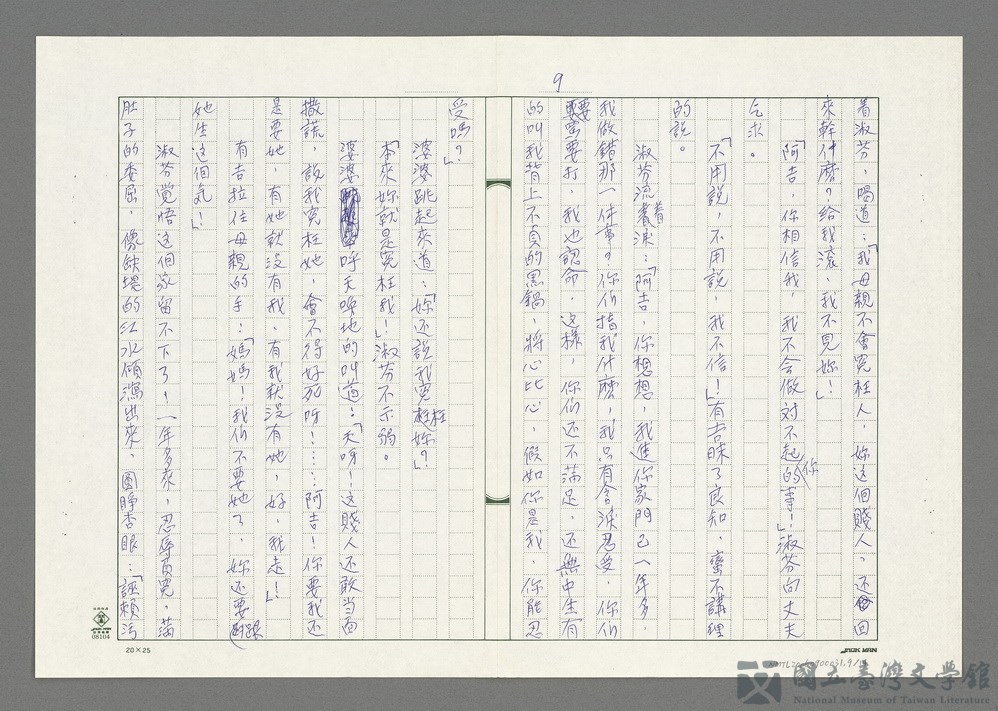 9
着淑芬，喝道：「我母親不會冤枉人，妳這個賤人，还回
來幹什麼？給我滾，我不見妳！」
「阿吉，你相信我，我不会做对不起你的事！」淑芬向丈夫
乞求。
「不用說，不用說，我不信！」有吉昧了良知，蛮不講理
的說。
淑芬流着淚：「阿吉，你想想，我進你家門已一年多，
我做錯那一件事？你们指我什麼，我只有含淚忍受，你们
要罵要打，我也認命，这樣，你们还不滿足，还無中生有
的叫我背上不貞的黑鍋，將心比心，假如你是我，你能忍
受嗎？」
婆婆跳起來道：「妳还説我冤枉妳？」
「本來妳就是冤枉我！」淑芬不示弱。
婆婆呼天喚地的叫道：「天呀！这賤人还敢当面
撒謊，說我冤枉她，會不得好死呀！……阿吉！你要我还
是要她，有她就没有我，有我就没有她，好，我走！」
有吉拉住母親的手：「媽媽！我们不要她了，妳还要跟
她生这個氣！」
淑芬覺悟这個家留不下了！一年多來，忍辱負冤，滿
肚子的委屈，像缺堤的江水傾瀉出來，圓睜杏眼：「誣賴污
20×25
08104
JACK MAN
國立臺灣文學館
National Museum of Taiwan Literature